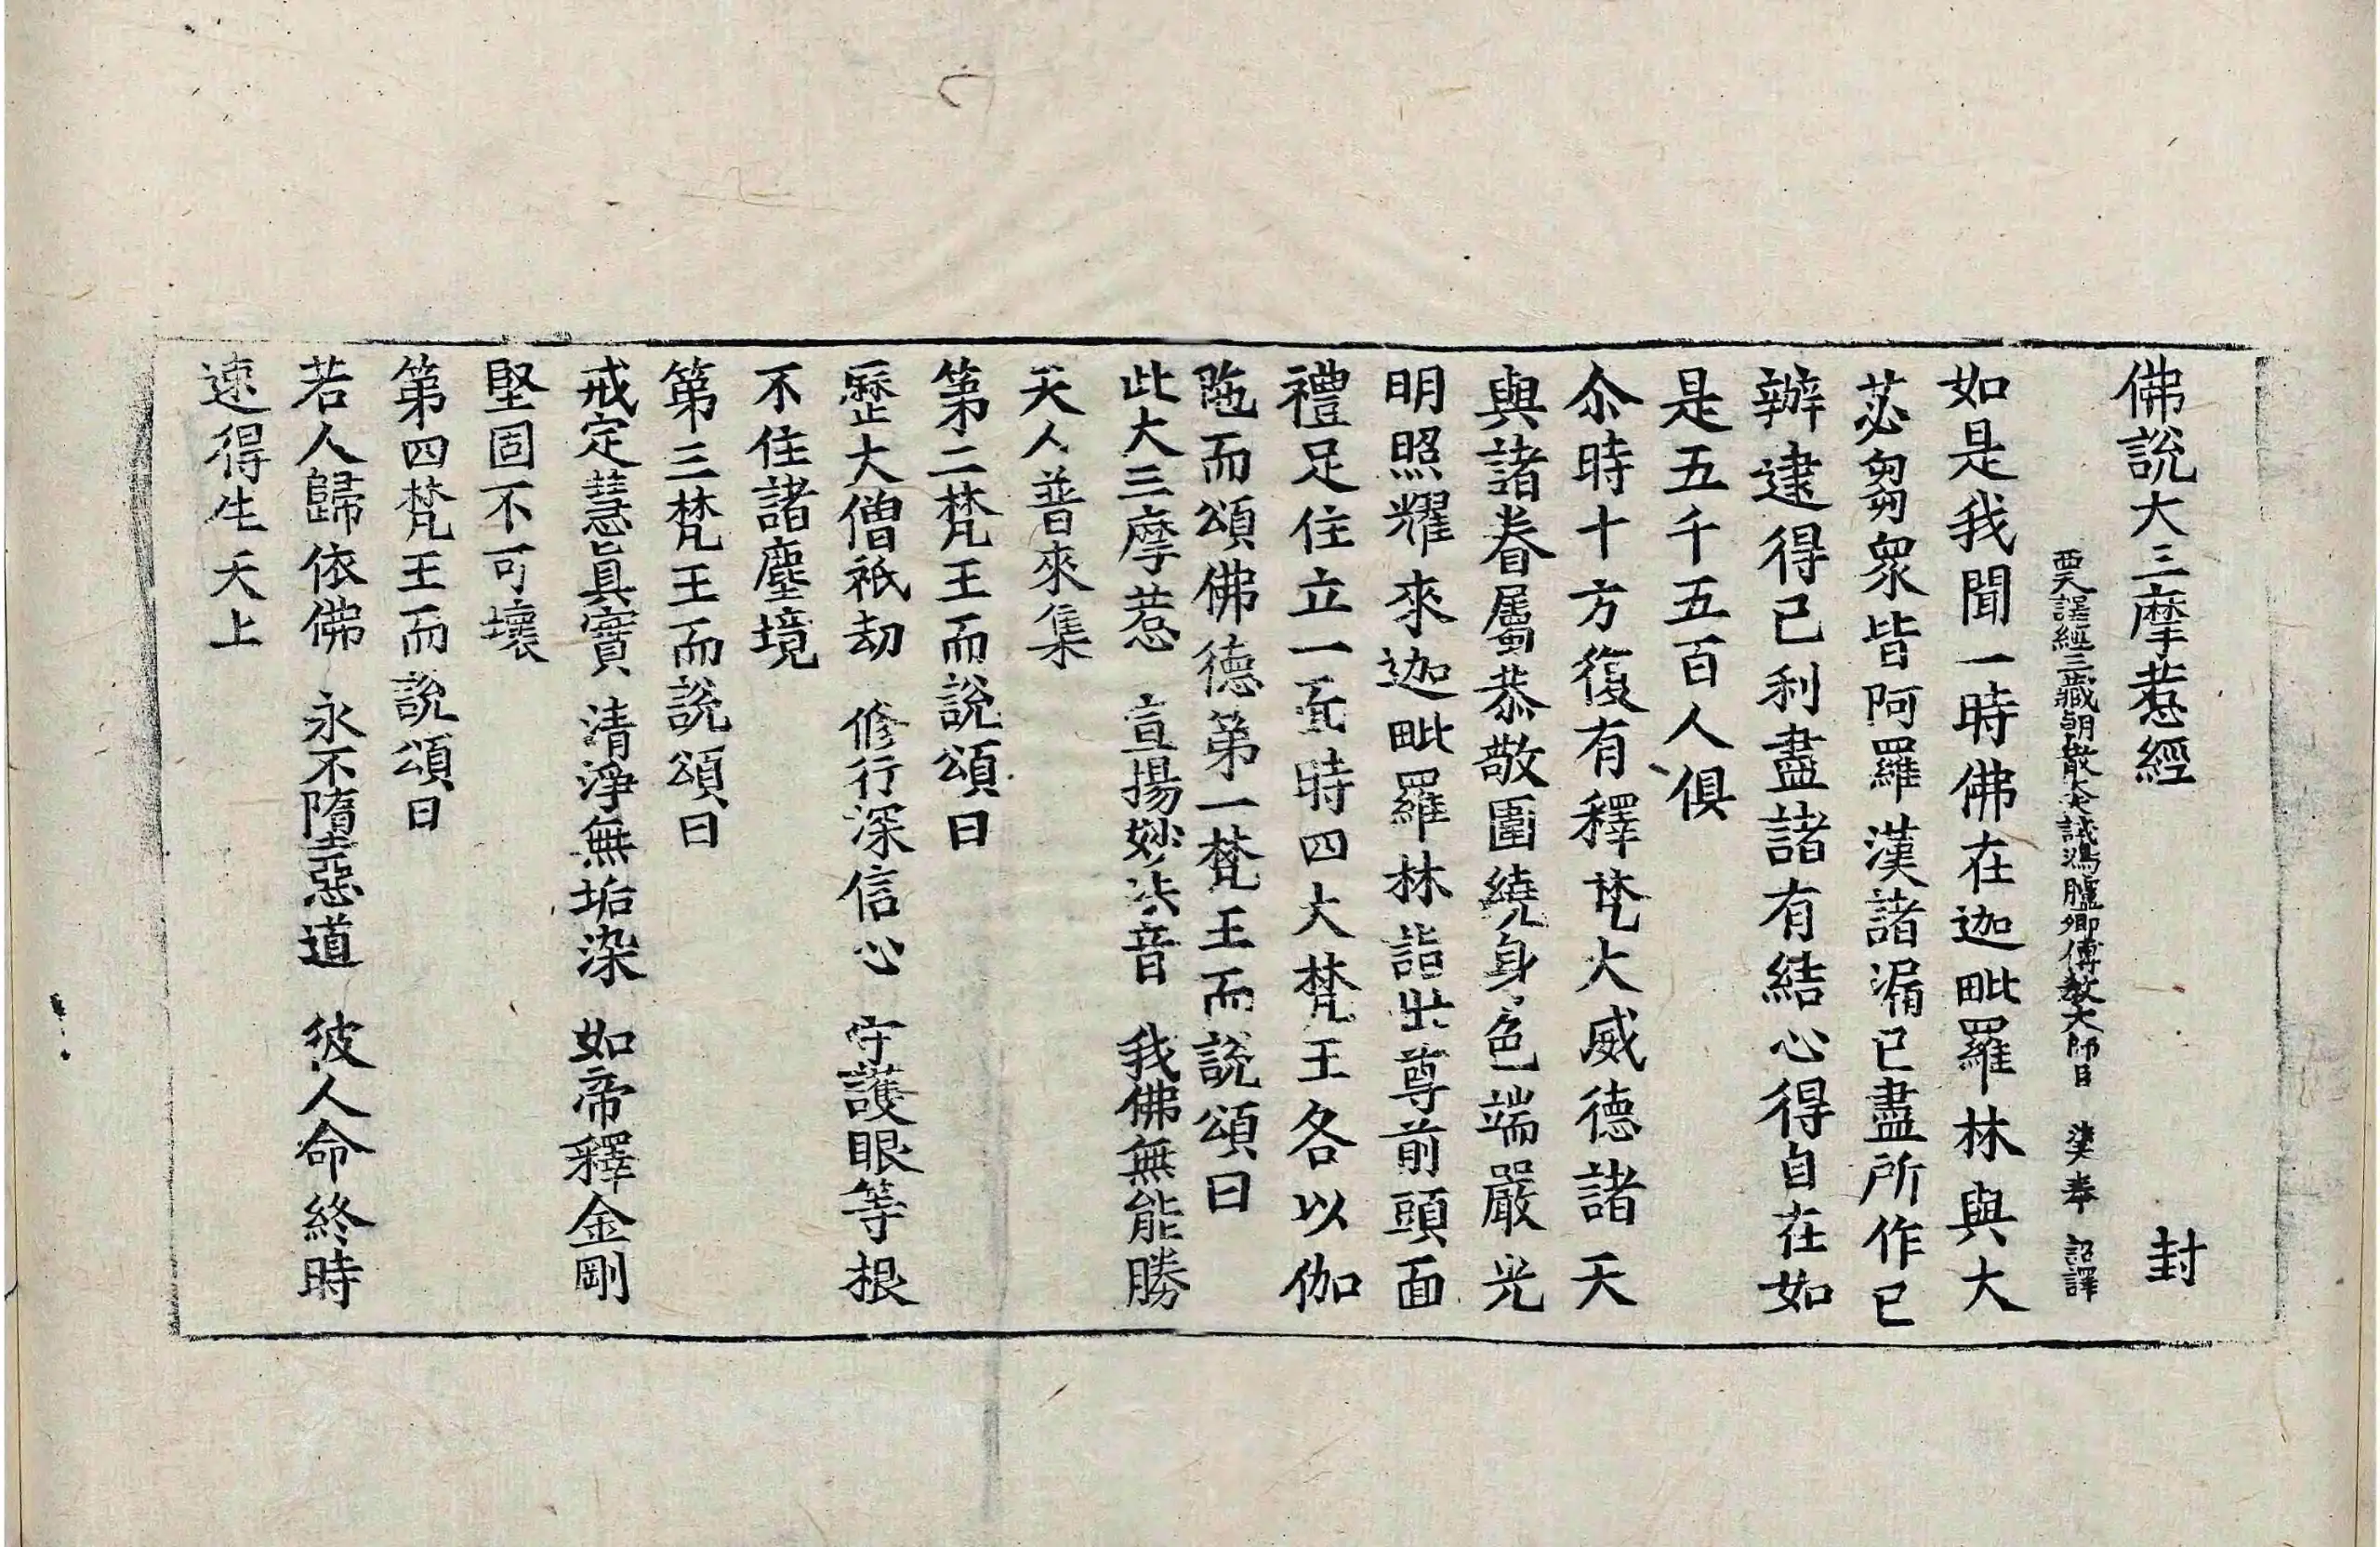 佛說大三摩惹經 封
西天譯經三藏朝散大夫試鴻臚卿傳教大師臣 法天奉 詔譯
如是我聞一時佛在迦毗羅林與大
苾芻衆皆阿羅漢諸漏已盡所作已
辦逮得己利盡諸有結心得自在如
是五千五百人俱
尒時十方復有釋梵大威德諸天
與諸眷屬恭敬圍繞身色端嚴光
明照耀來迦毗羅林詣世尊前頭面
禮足住立一面時四大梵王各以伽
陁而頌佛德第一梵王而說頌曰
此大三摩惹 宣揚妙法音 我佛無能勝
天人普來集
第二梵王而說頌曰
歷大僧祇劫 修行深信心 守護眼等根
不住諸塵境
第三梵王而說頌曰
戒定慧眞實 清淨無垢染 如帝釋金剛
堅固不可壞
第四梵王而說頌曰
若人歸依佛 永不墮惡道 彼人命終時
速得生天上